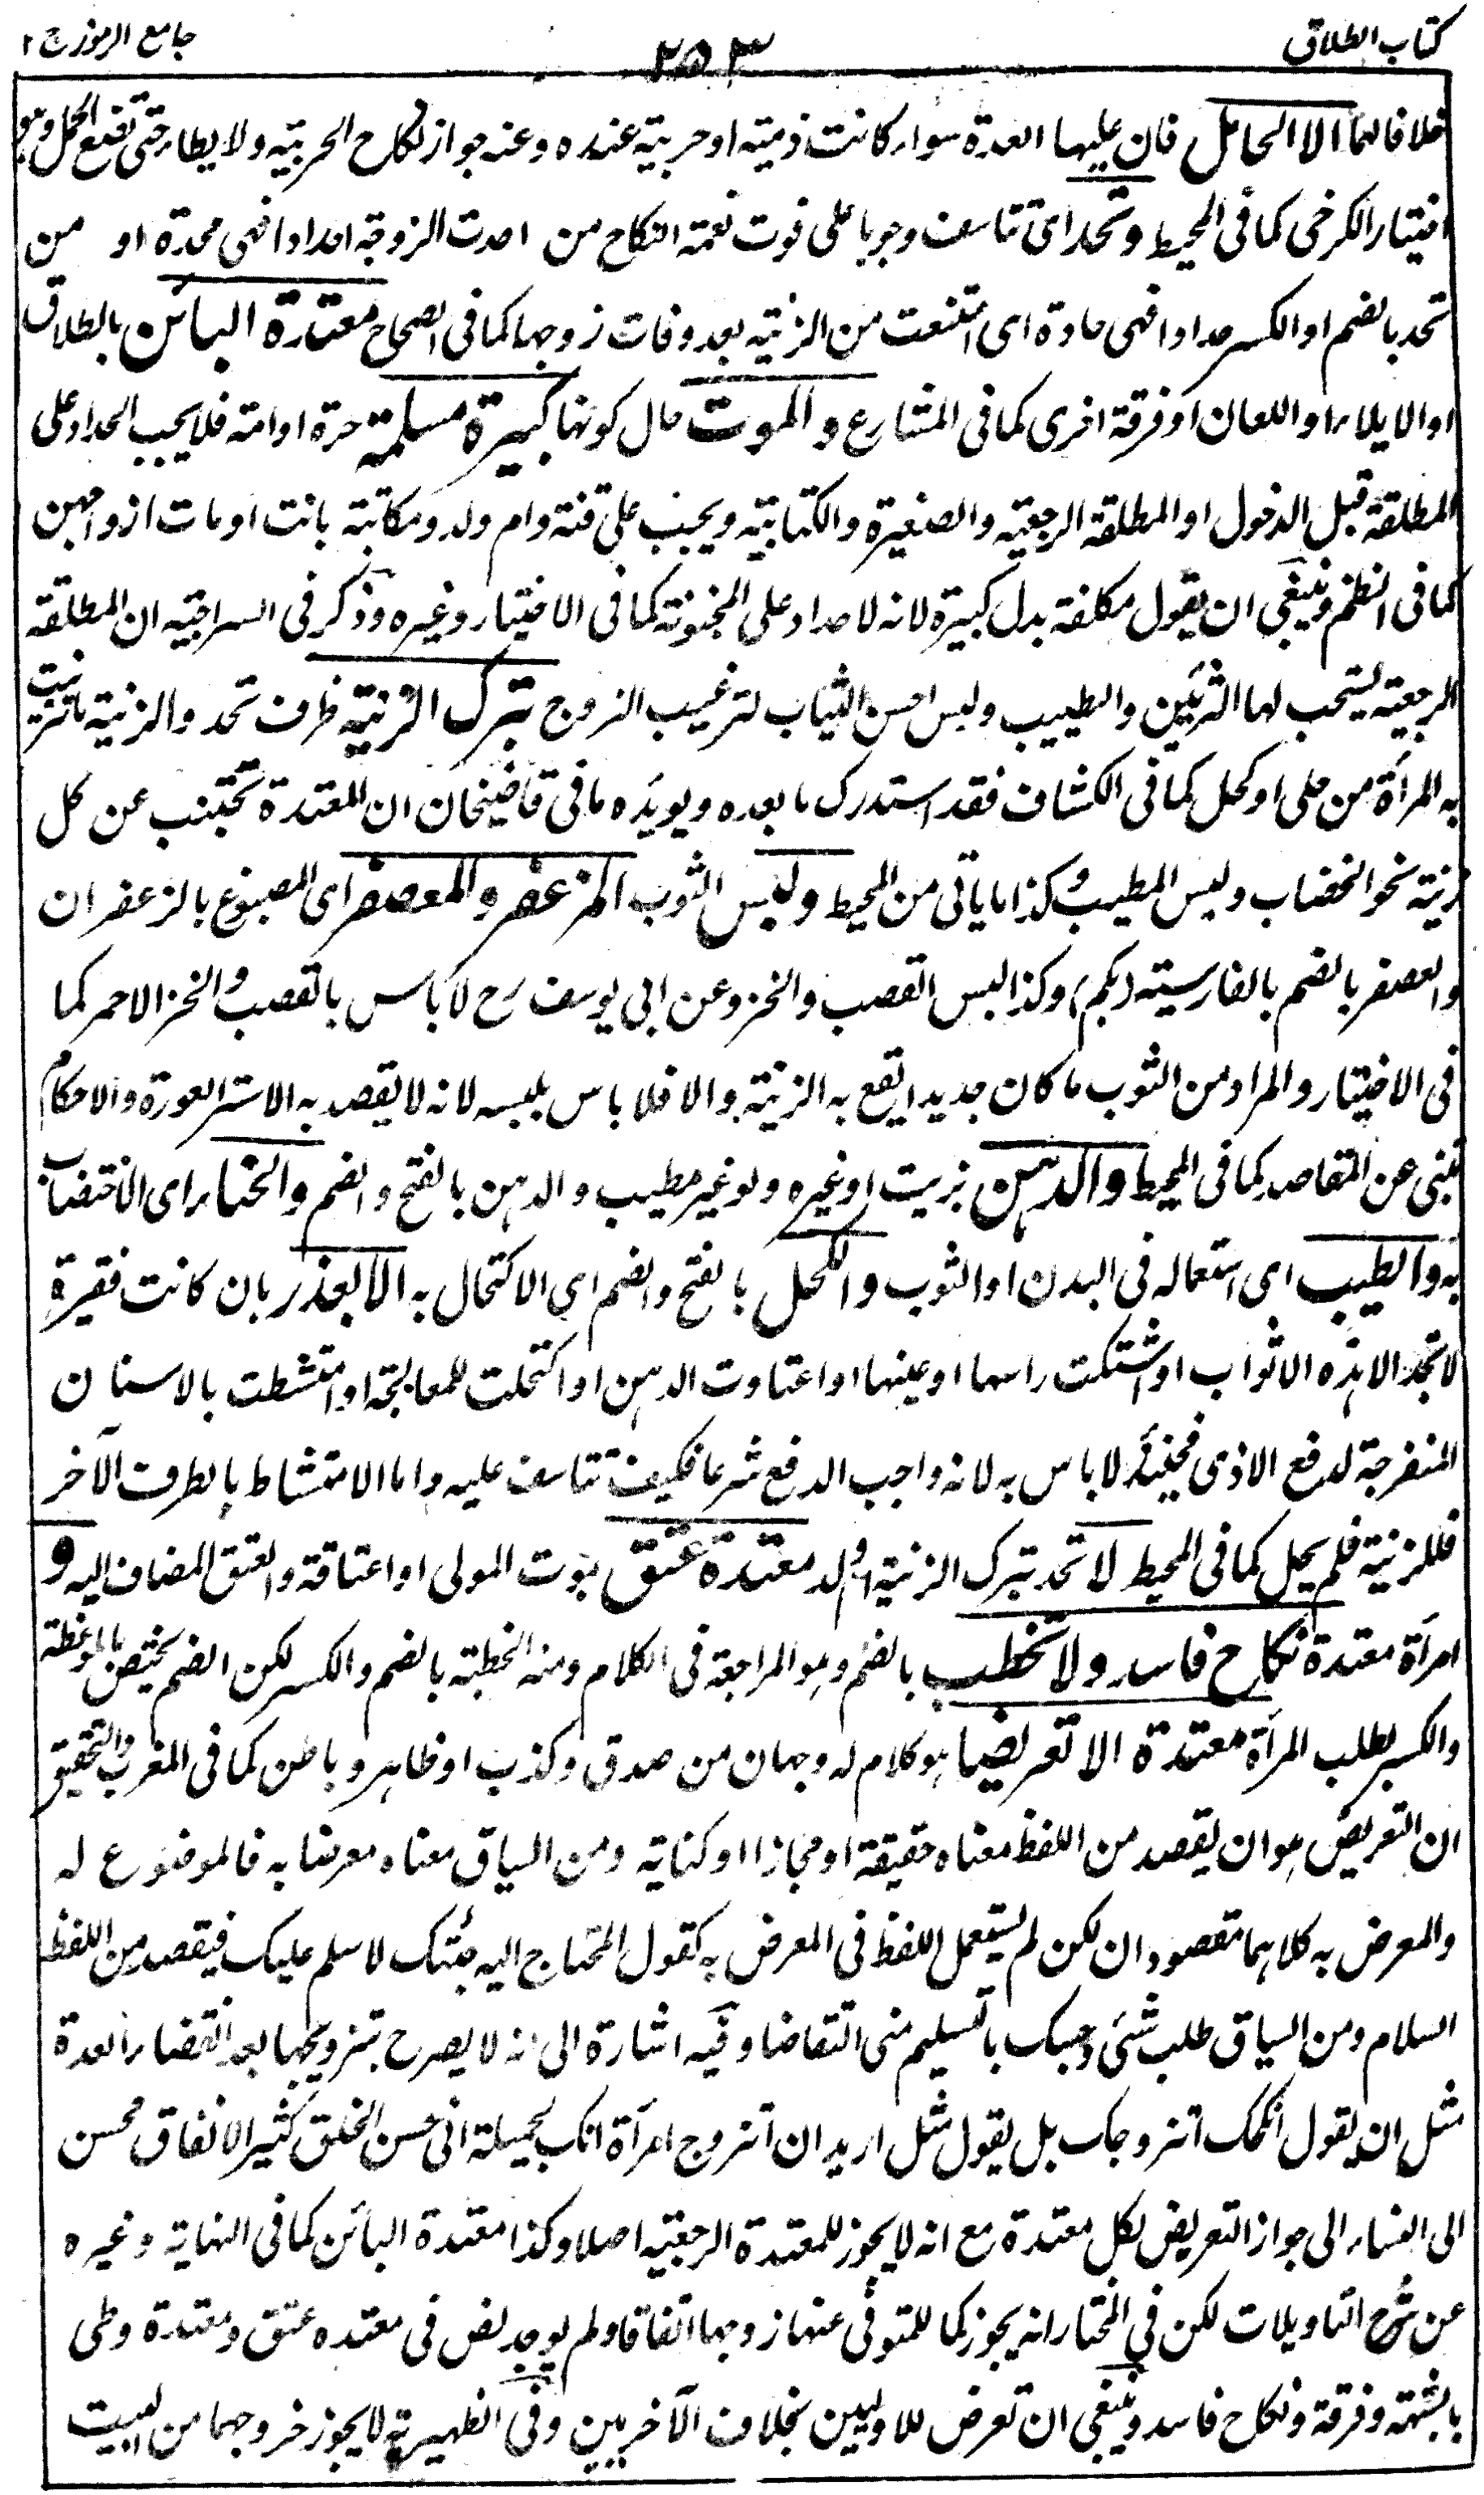 كتاب الطلاق
٢٥٣
جامع الرموز ج ٢
خلافا لهما الا الحامل فان عليها العدة سواء كانت ذمية او حربية عنده وعنه جواز نكاح الحربية ولا يطأ حتى تضع الحمل وهو
اختيار الكرخى كما فى المحيط وتحد اى تتاسف وجوبا على فوت نعمة النكاح من احدت الزوجة احدادا فهى محدة او من
تحد بالضم او الكسر حدادا فهى حادة اى امتنعت من الزينة بعد وفات زوجها كما فى الصحاح معتدة البائن بالطلاق
او الايلاء او اللعان او فرقة اخرى كما فى المشارع والموت حال كونها كبيرة مسلمة حرة او امة فلا يجب الحداد على
المطلقة قبل الدخول او المطلقة الرجعية والصغيرة والكتابية ويجب على قنة وام ولد ومكاتبة بانت او مات ازواجهن
كما فى النظم وينبغى ان يقول مكلفة بدل كبيرة لانه لا حداد على المجنونة كما فى الاختيار وغيره وذكر فى السراجية ان المطلقة
الرجعية يستحب لها التزيين والطيب ولبس احسن الثياب لترغيب الزوج بترك الزينة ظرف تحد والزينة ما تزينت
به المرأة من حلى او كحل كما فى الكشاف فقد استدرك ما بعده ويويده ما فى قاضيخان ان المعتدة تجتنب عن كل
زينة نحو الخضاب ولبس المطيب وكذا ما ياتى من المحيط ولبس الثوب المزعفر والمعصفر اى المصبوغ بالزعفران
والعصفر بالضم بالفارسية (بكم) وكذا لبس القصب والخز وعن ابى يوسف رح لا باس بالقصب والخز الاحمر كما
فى الاختيار والمراد من الثوب ما كان جديدا يقع به الزينة والا فلا باس بلبسه لانه لا يقصد به الا ستر العورة والاحكام
تبنى عن المقاصد كما فى المحيط والدهن بزيت او غيره ولو غير مطيب والدهن بالفتح والضم والحناء اى الاختضاب
به والطيب اى استعماله فى البدن او الثوب والكحل بالفتح والضم اى الاكتحال به الا بعذر بان كانت فقيرة
لا تجد الا هذه الاثواب او اشتكت راسها او عينها او اعتاوت الدهن او اكتحلت للمعالجة او امتشطت بالاسنان
المنفرجة لدفع الاذى فحينئذ لا باس به لانه واجب الدفع شرعا فكيف تتاسف عليه واما الامتشاط بالطرف الآخر
فللزينة فلم يحل كما فى المحيط لا تحد بترك الزينة ام ولد معتدة عتق بموت المولى او اعتاقة والعتق المضاف اليه و
امرأة معتدة نكاح فاسد ولا تخطب بالضم وهو المراجعة فى الكلام ومنه الخطبة بالضم والكسر لكن الضم يختص بالموعظة
والكسر بطلب المرأة معتدة الا تعريضا هو كلام له وجهان من صدق وكذب او ظاهر وباطن كما فى المغرب والتحقيق
ان التعريض هو ان يقصد من اللفظ معناه حقيقة او مجازا او كناية ومن السياق معناه معرضا به فالموضوع له
والمعرض به كلاهما مقصود ان لكن لم يستعمل اللفظ فى المعرض به كقول المحتاج اليه جئتك لاسلم عليك فيقصد من اللفظ
السلام ومن السياق طلب شئ وحسبك بالتسليم منى التقاضا وفيه اشارة الى انه لا يصرح بتزويجها بعد انقضاء العدة
مثل ان يقول انكحك اتزوجك بل يقول مثل اريد ان اتزوج امرأة انك لجميلة انى حسن الخلق كثير الانفاق محسن
الى النساء الى جواز التعريض لكل معتدة مع انه لا يجوز للمعتدة الرجعية اصلا وكذا معتدة البائن كما فى النهاية وغيره
عن شرح التاويلات لكن فى المختار انه يجوز كما للمتوفى عنها زوجها اتفاقا ولم يوجد نص فى معتده عتق ومعتدة وطى
بالشبهة وفرقة ونكاح فاسد وينبغى ان تعرض للاوليين بخلاف الآخريين وفى الظهيرية لا يجوز خروجها من البيت